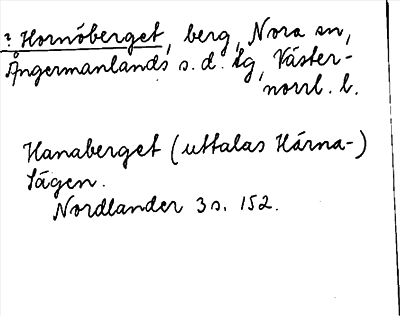 ? Hornöberget, berg, Nora sn,
Ångermanlands s. d. tg, Väster-
norrl. l.
Hanaberget (uttalas Hárna-)
Sägen.
Nordlander 3 s. 152.